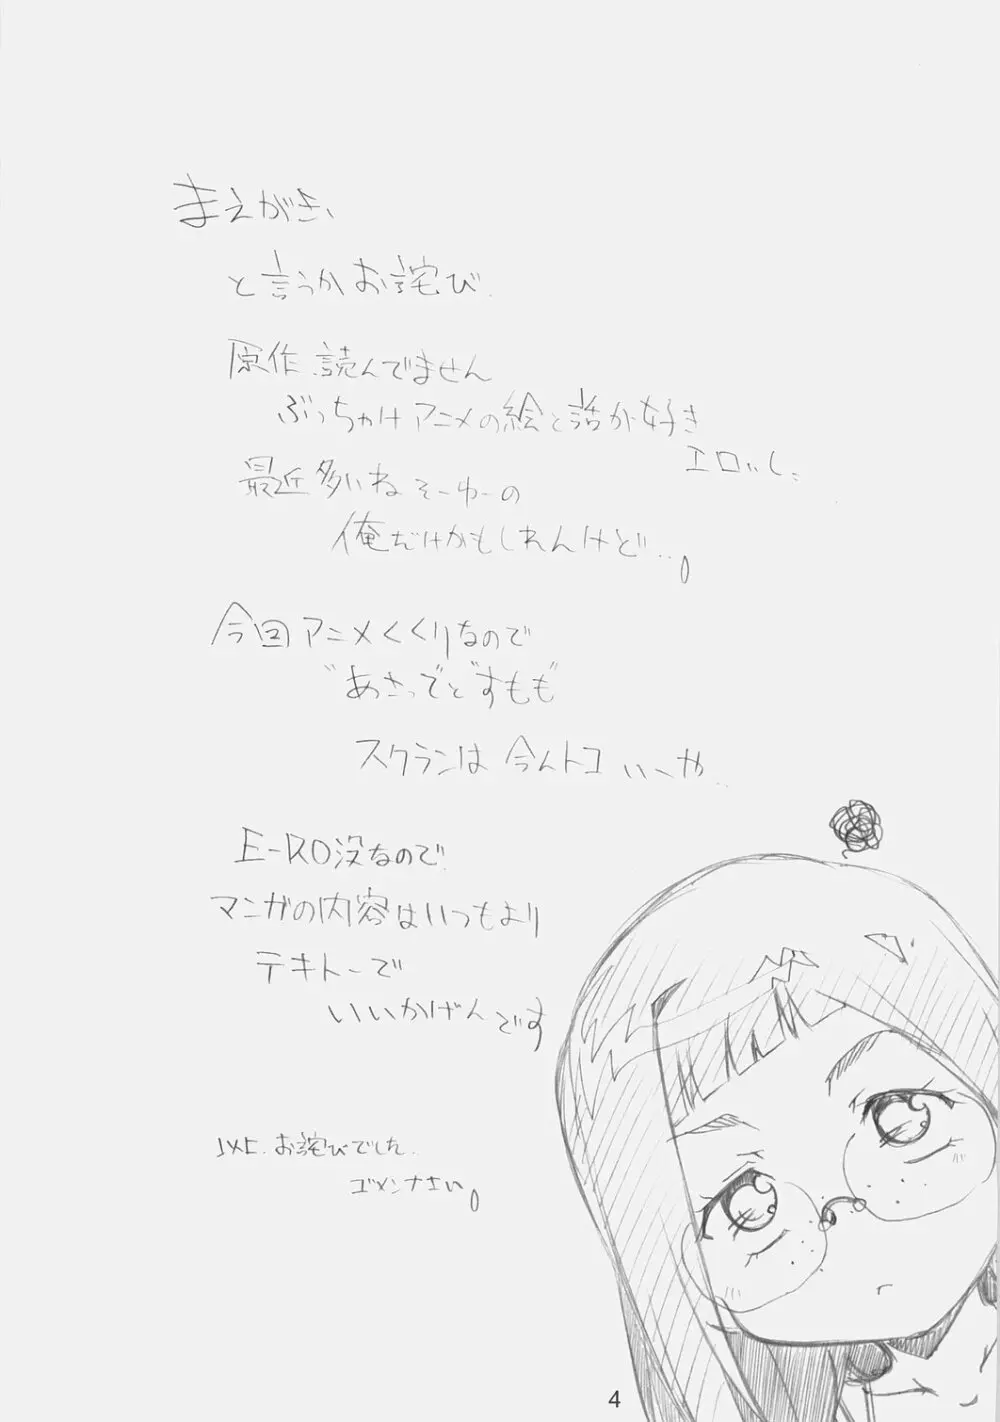 まえがき、
と言うかお詫び.
原作.読んでません
ぶっちゃけアニメの絵と話が好き
エロいし.
最近多いねそーゆーの
俺だけかもしれんけど…。
今回アニメくくりなので
"あさって"と"すもも"
スクランは今んトコいーや..
E-RO没なので.
マンガの内容はいつもより
テキトーで
いいかげんです
以上.お詫びでした.
ゴメンナさい。
4